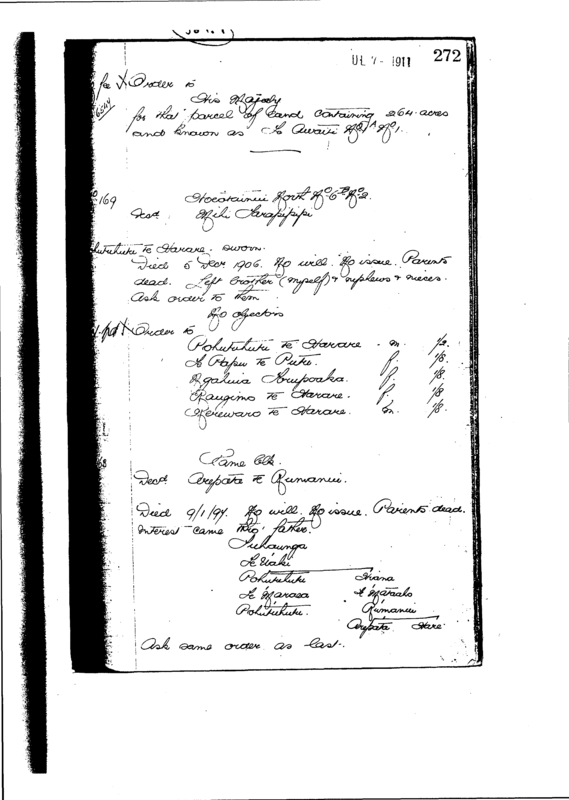 7 - 1911 272
Order to
His Majesty
for that parcel of land containing 264 acres
and known as Te Awaiti No 1A No 1.
169
North No 6B No 2.
Decd. Mihi Tarapipipi
te Harare. sworn.
Died 5 1906. No will. No issue. Parents
dead. Left brother (myself) + nephews + nieces.
Ask order to them
No objectors
Order to
Pohutuhutu te Harare . m. 1/2
Te Hapu te Putu. f. 1/8
Ngahuia f. 1/8
te Harare. f. 1/8
Herewaro te Harare. m. 1/8
Same blk.
Decd. Arepata te Rumanui.
Died 9/1/94. No will. No issue. Parents dead.
Interest came thro' father.
Tuhaunga
Te Uaki
Pohutuhutu Hana
Te
Pohutuhutu. Rumanui
Arepata Hare
Ask same order as last.